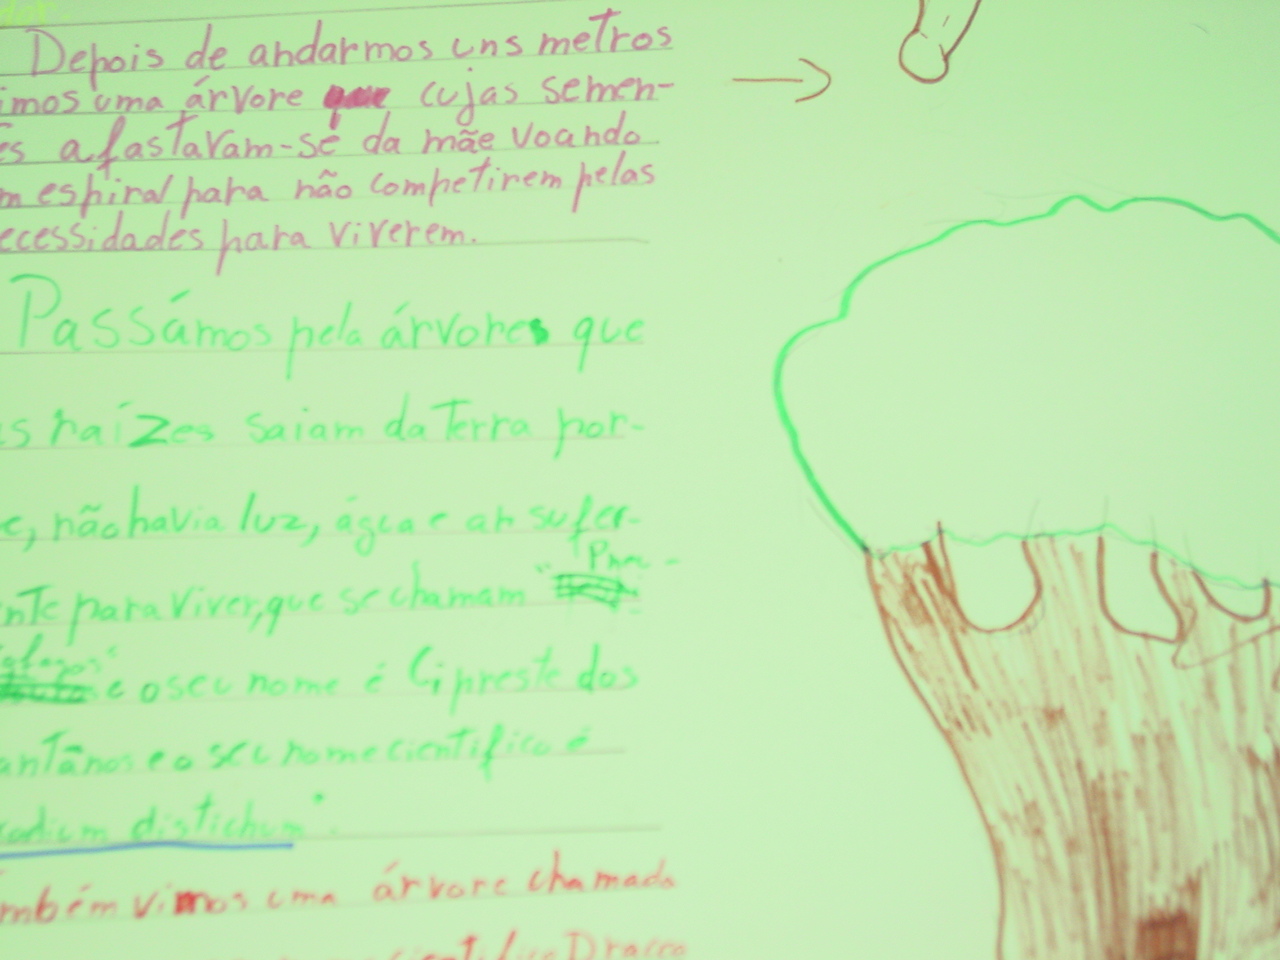 Depois de andarmos uns metros
imos uma árvore que cujas semen-
es afastavam-se da mãe voando
m espiral para não competirem pelas
ecessidades para viverem.
Passámos pela árvores que
s raízes saiam da terra por-
e, não havia luz, água e ar sufer-
nte para viver, que se chamam "
e o seu nome é Cipreste dos
antânos e o seu nome cientifico é
odium distichum".
mbém vimos uma árvore chamada
Dracea